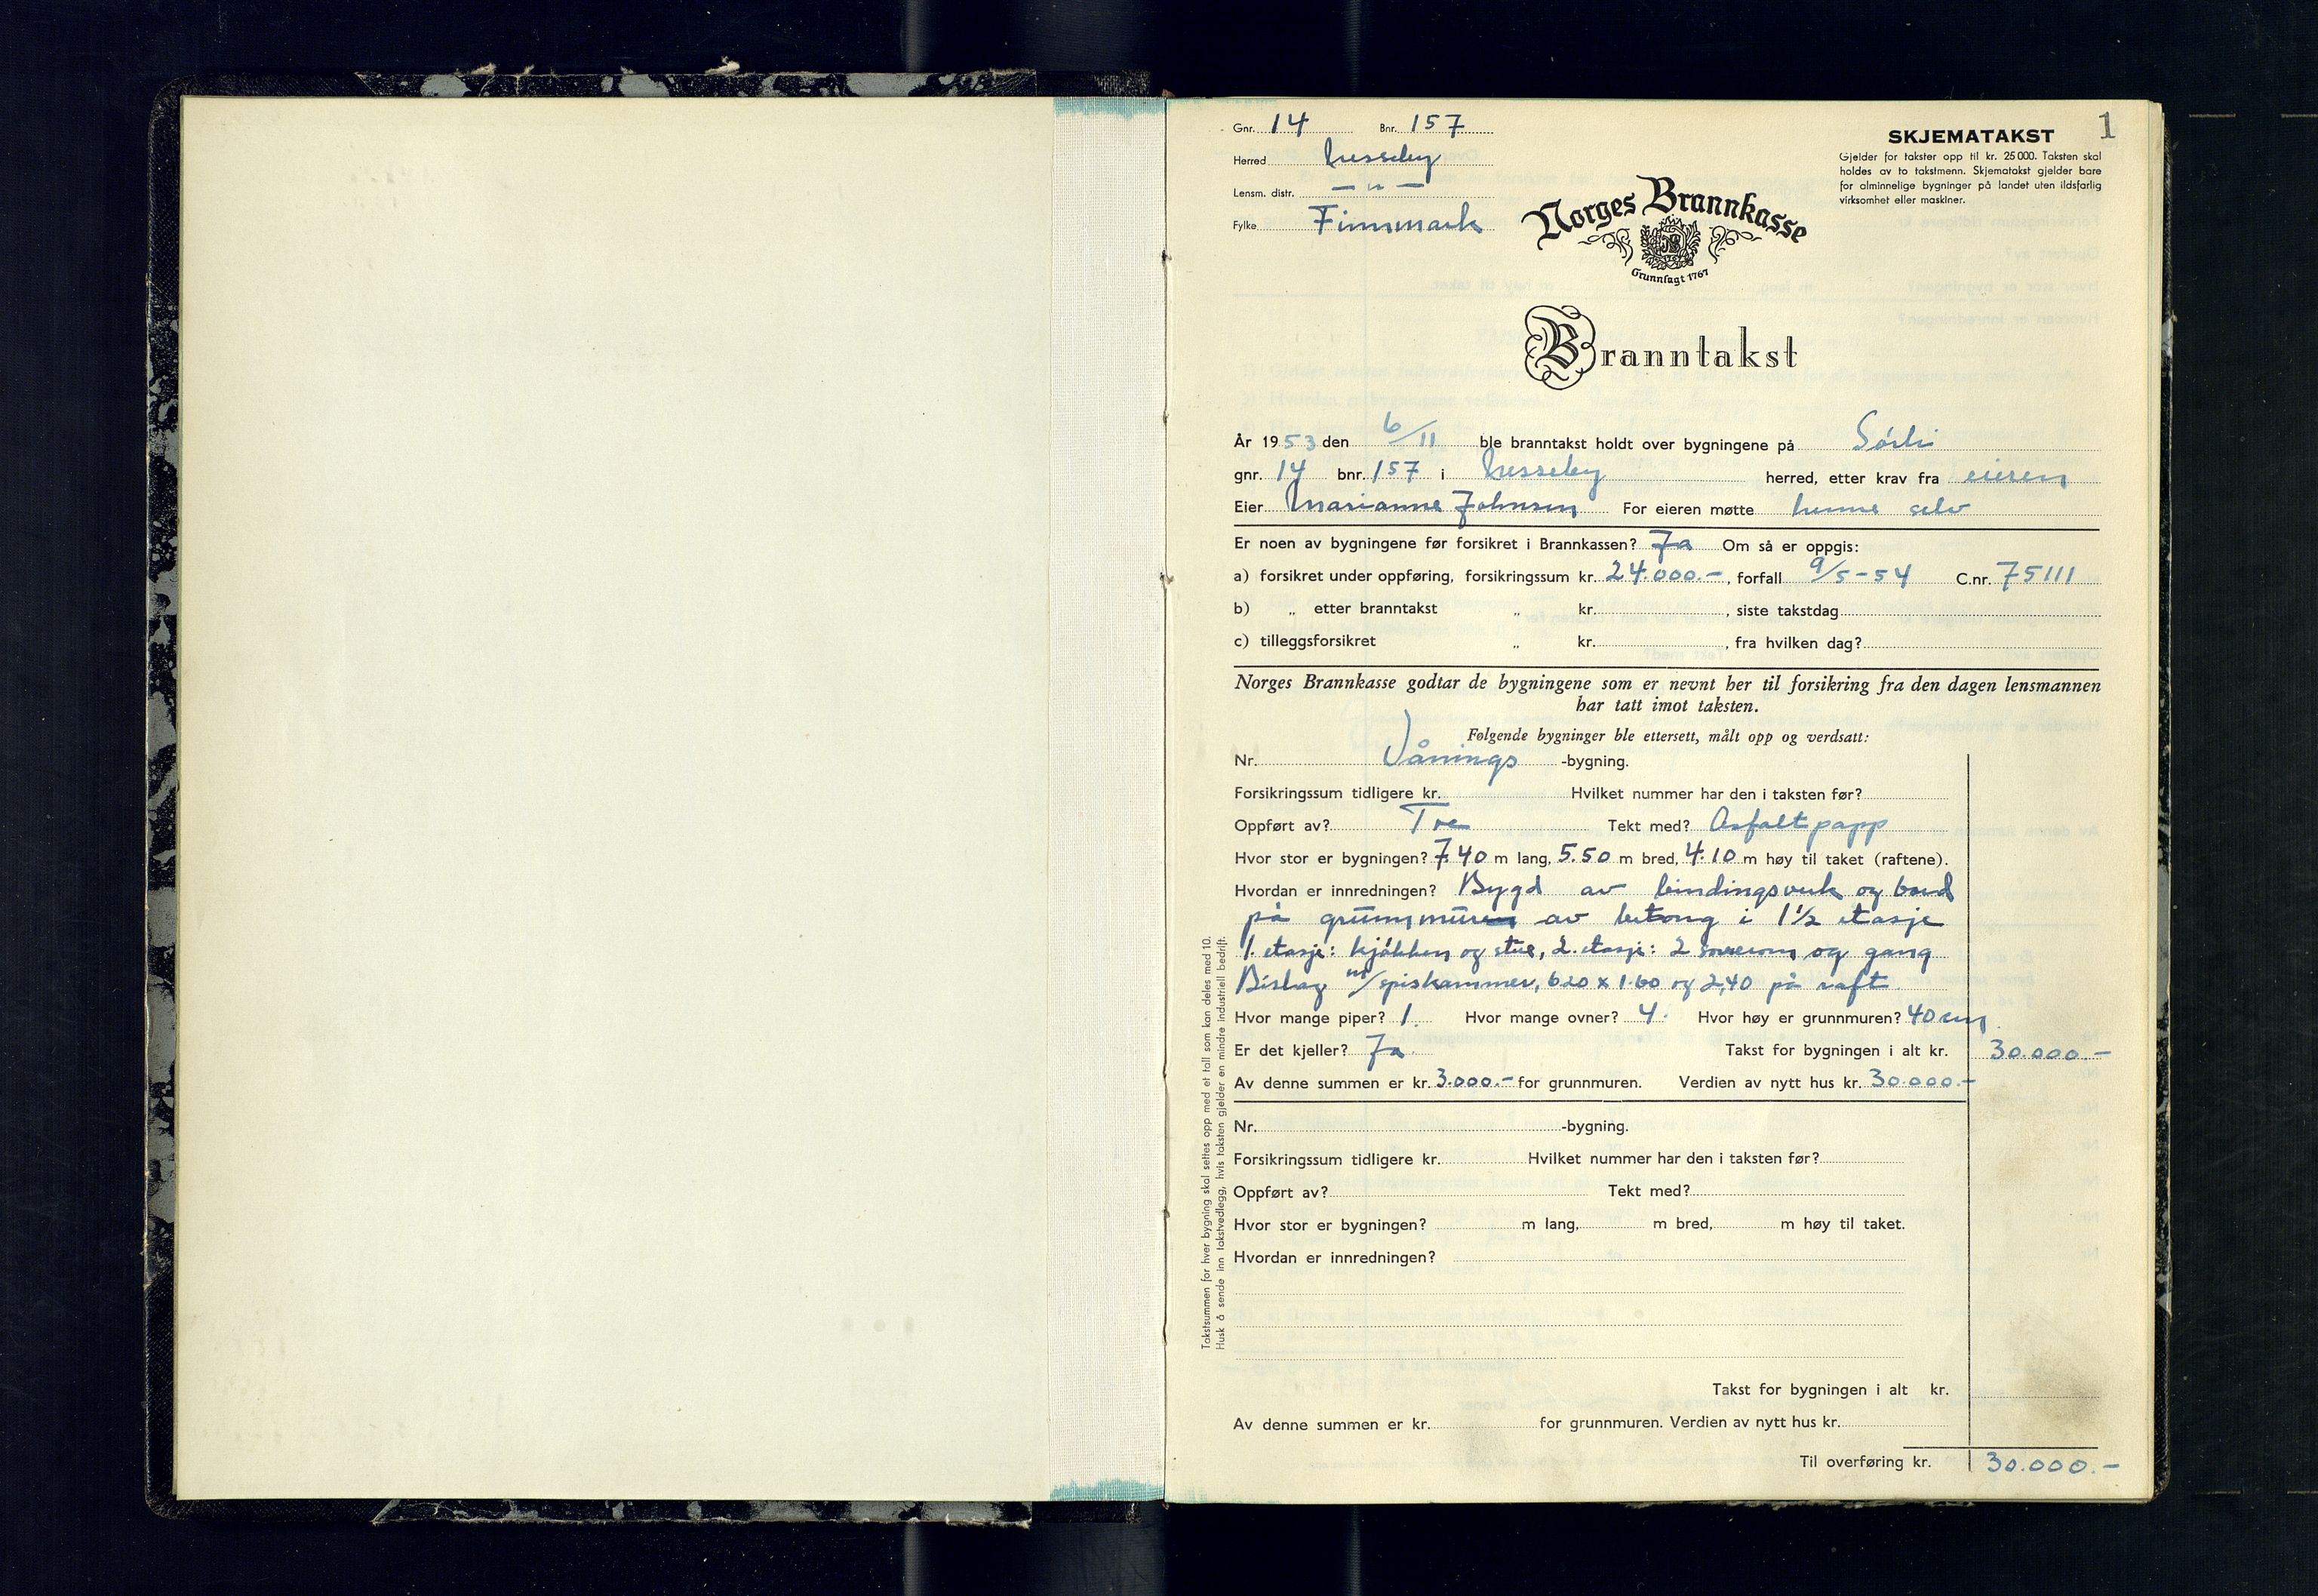 Gnr. 14 Bnr. 157
SKJEMATAKST 1
Herred Nesseby
Gjelder for takster opp til kr. 25 000. Taksten skal
holdes av to takstmenn. Skjematakst gjelder bare
for alminnelige bygninger på landet uten ildsfarlig
virksomhet eller maskiner.
Lensm. distr. — " —
Fylke Finnmark
Norges Brannkasse
Grunnlagt 1767
Branntakst
År 1953 den 6/11 ble branntakst holdt over bygningene på Sörli
gnr. 14 bnr. 157 i Nesseby herred, etter krav fra eieren
Eier Marianne Johnsen For eieren møtte henne selv
Er noen av bygningene før forsikret i Brannkassen? Ja Om så er oppgis:
a) forsikret under oppføring, forsikringssum kr. 24.000.-, forfall 9/5-54 C.nr. 75111
b) „ etter branntakst „ kr. , siste takstdag
c) tilleggsforsikret „ kr. , fra hvilken dag?
Norges Brannkasse godtar de bygningene som er nevnt her til forsikring fra den dagen lensmannen
har tatt imot taksten.
Følgende bygninger ble ettersett, målt opp og verdsatt:
Nr. Vånings -bygning.
Forsikringssum tidligere kr. Hvilket nummer har den i taksten før?
Oppført av? Tre Tekt med? Asfaltpapp
Hvor stor er bygningen? 7.40 m lang, 5.50 m bred, 4.10 m høy til taket (raftene).
Hvordan er innredningen? Bygd av bindingsverk og bord
på grunnmuren av betong i 1 1/2 etasje
1. etasje: kjökken og stue, 2. etasje: 2 soverom og gang
Bislag m/spiskammer, 6.20 x 1.60 og 2,40 på raft
Hvor mange piper? 1. Hvor mange ovner? 4. Hvor høy er grunnmuren? 40 cm
Er det kjeller? Ja Takst for bygningen i alt kr. 30.000.-
Av denne summen er kr. 3.000.- for grunnmuren. Verdien av nytt hus kr. 30.000.-
Nr. -bygning.
Forsikringssum tidligere kr. Hvilket nummer har den i taksten før?
Oppført av? Tekt med?
Hvor stor er bygningen? m lang, m bred, m høy til taket.
Hvordan er innredningen?
Takst for bygningen i alt kr.
Av denne summen er kr. for grunnmuren. Verdien av nytt hus kr.
Til overføring kr. 30.000.-
Takstsummen for hver bygning skal settes opp med et tall som kan deles med 10.
Husk å sende inn takstvedlegg, hvis taksten gjelder en mindre industriell bedrift.